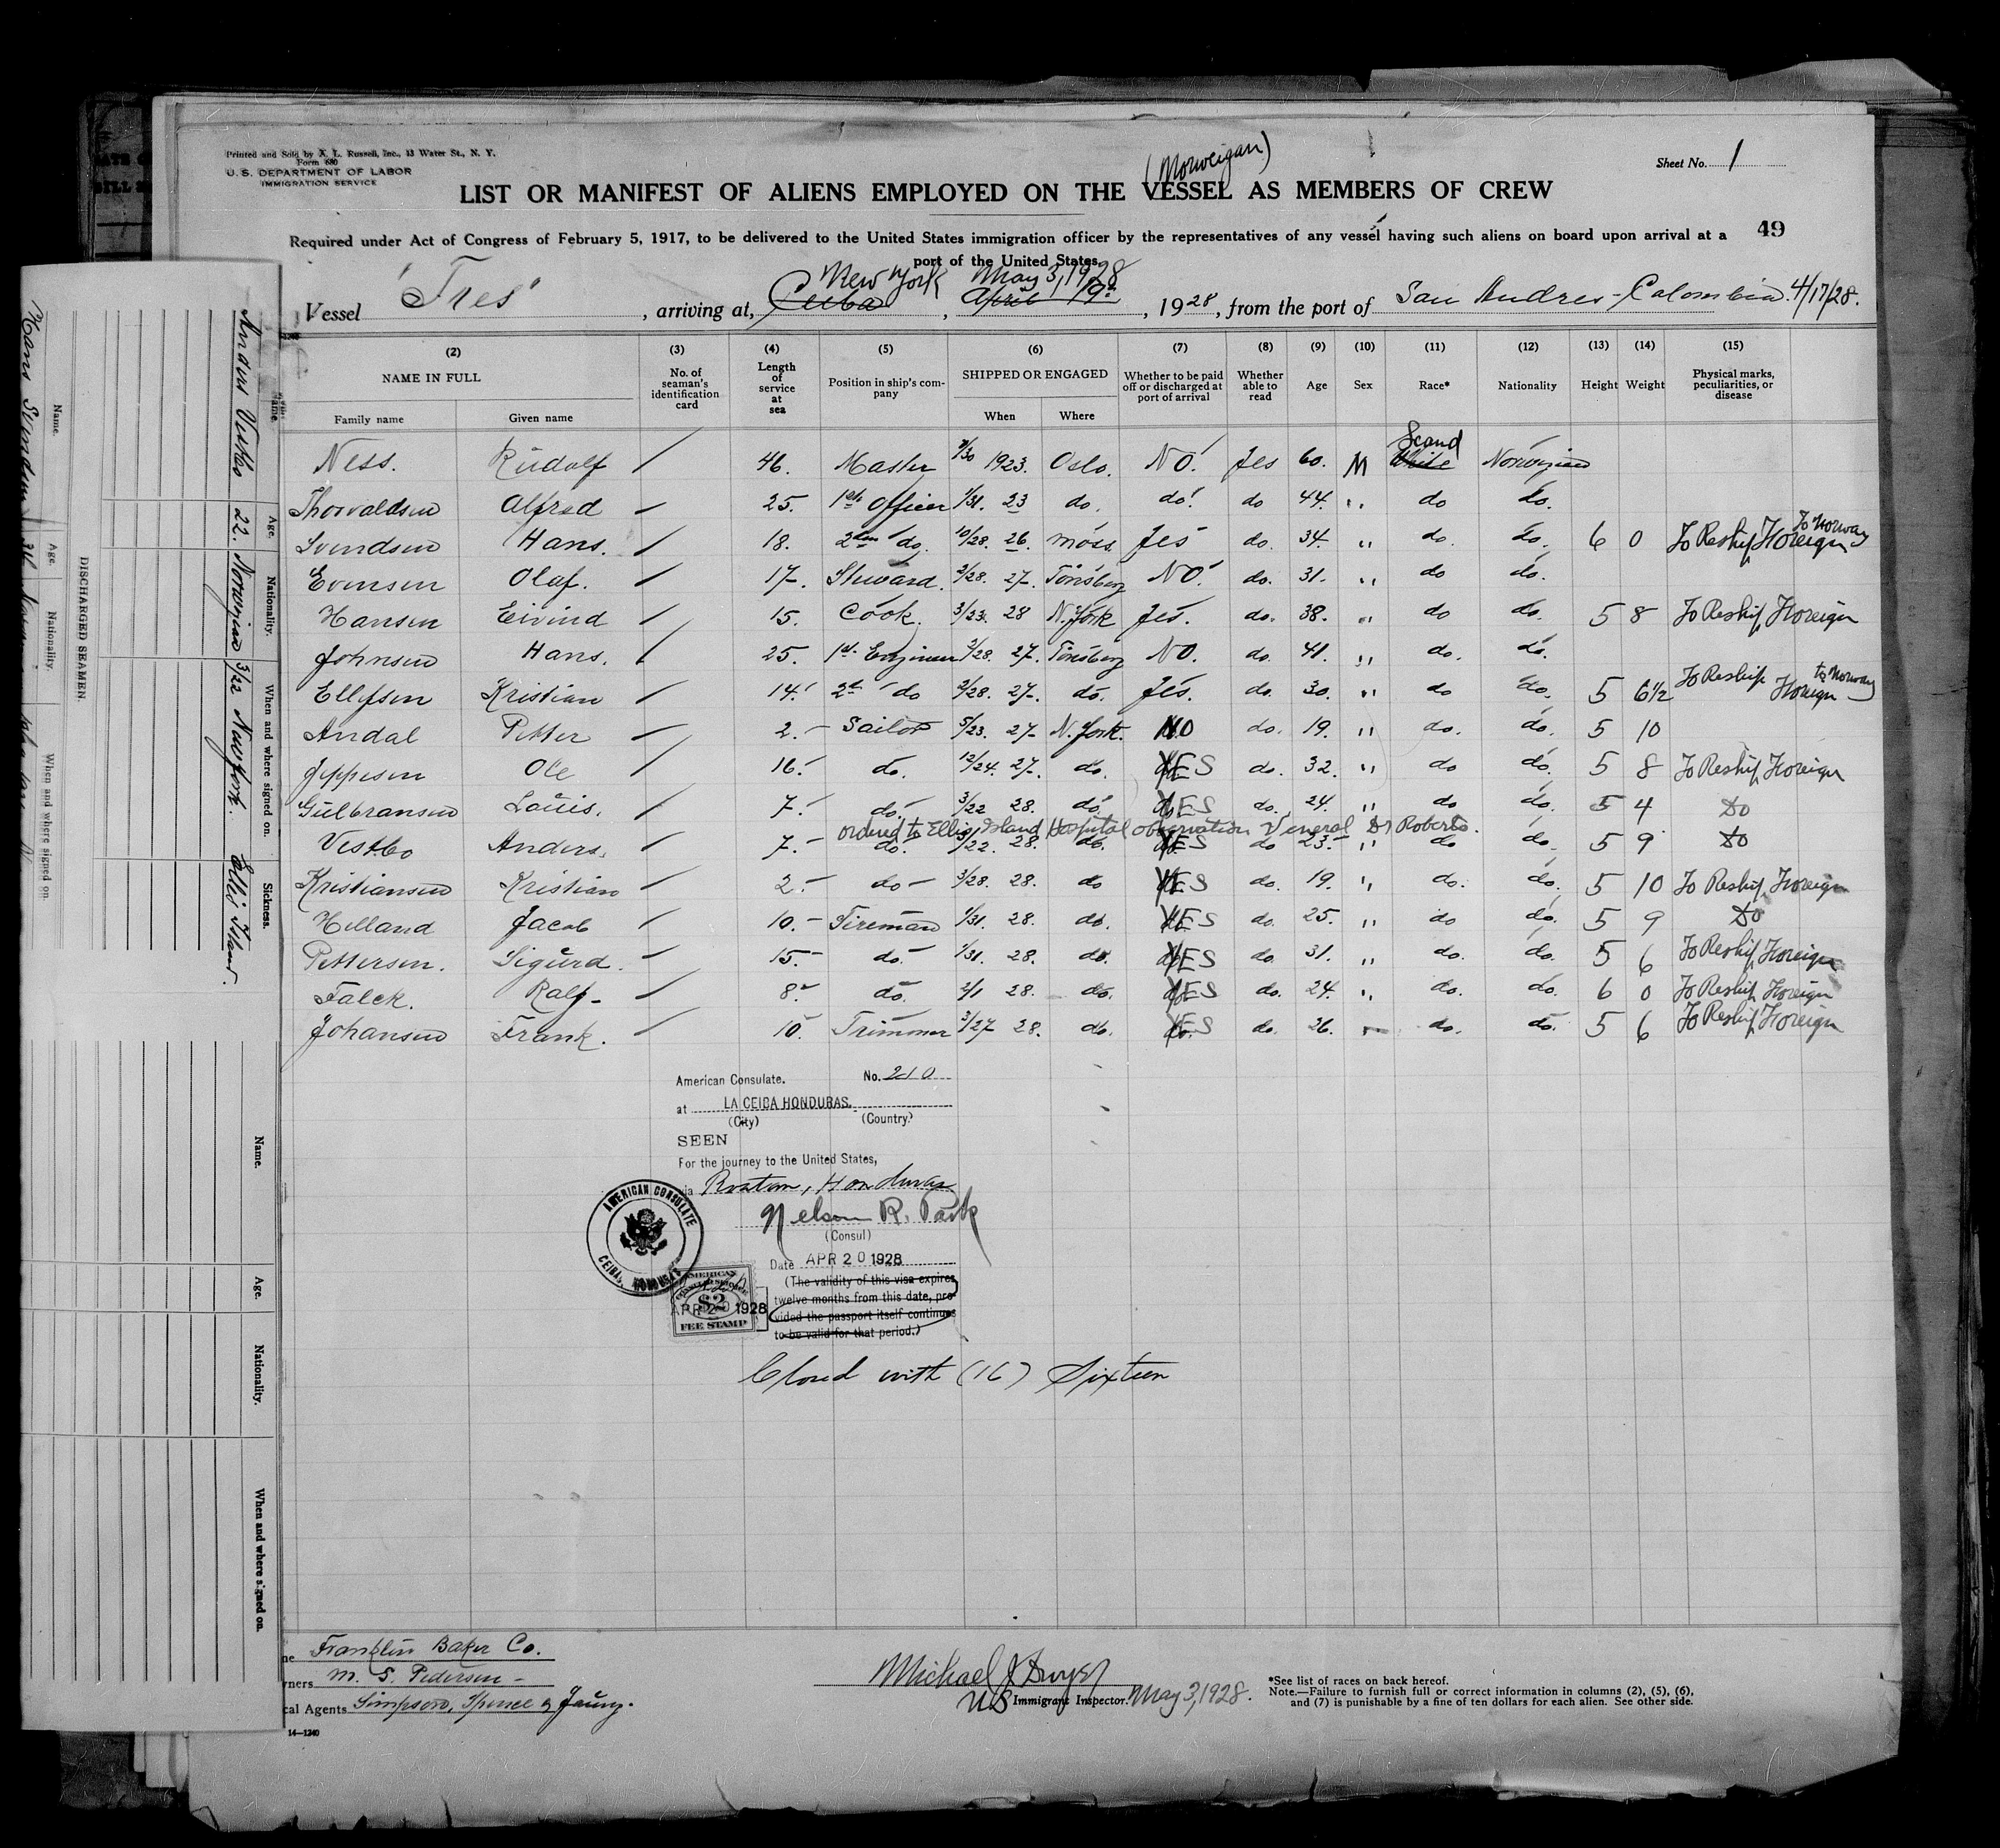 Printed and Sold by A. L. Russell, Inc., 13 Water St., N. Y.
Form 680
U. S. DEPARTMENT OF LABOR
IMMIGRATION SERVICE
(Norweigan)
Sheet No. 1
LIST OR MANIFEST OF ALIENS EMPLOYED ON THE VESSEL AS MEMBERS OF CREW
49
Required under Act of Congress of February 5, 1917, to be delivered to the United States immigration officer by the representatives of any vessel having such aliens on board upon arrival at a
port of the United States
New York May 3, 1928
Vessel "Tres", arriving at, Ceiba, April 19, 1928, from the port of San Andres - Colombia. 4/17/28.
(2) (3) (4) (5) (6) (7) (8) (9) (10) (11) (12) (13) (14) (15)
NAME IN FULL No. of seaman's identification card Length of service at sea Position in ship's company SHIPPED OR ENGAGED Whether to be paid off or discharged at port of arrival Whether able to read Age Sex Race* Nationality Height Weight Physical marks, peculiarities, or disease
Family name Given name When Where
Scand
Ness. Rudolf / 46. Master 7/30 1923. Oslo. NO. Yes 60. M White Norwegian
Thorvaldsen Alfred / 25. 1st Officer 1/31. 23 do. do. do 44. " do do.
To Norway
Svendsen Hans. / 18. 2den do. 10/28. 26. Moss. Yes do. 34. " do. do. 6 0 To Reship Foreign
Evensen Olaf. / 17. Steward. 2/28. 27. Tönsberg NO. do. 31. " do do.
Hansen Eivind / 15. Cook. 3/23. 28 N. York Yes. do. 38. " do do. 5 8 To Reship Foreign
Johnsen Hans. / 25. 1st Engineer 2/28. 27. Tönsberg NO. do. 41. " do. do.
Ellefsen Kristian / 14. 2d do 2/28. 27. do. Yes. do. 30. " do do. 5 6½ To Reship Foreign to Norway
Andal Petter / 2. Sailor 5/23. 27 N. York. NO do. 19. " do. do. 5 10
Jeppesen Ole / 16. do. 12/24. 27. do. YES do. 32. " do do. 5 8 To Reship Foreign
Gulbransen Louis. / 7. do. 3/22 28. do. YES do. 24. " do do. 5 4 Do
ordered to Ellis Island Hospital observation Veneral Dr Roberts.
Vestbo Anders. / 7. do. 3/22. 28. do. YES do 23. " do do. 5 9 Do
Kristiansen Kristian / 2. do 3/28. 28. do YES do. 19. " do. do. 5 10 To Reship Foreign
Helland Jacob / 10. Fireman 1/31. 28. do. YES do. 25. " do do. 5 9 Do
Pettersen. Sigurd. / 15. do. 1/31. 28. do. YES do. 31. " do. do. 5 6 To Reship Foreign
Falck. Ralf / 8. do. 2/1 28. do. YES do. 24. " do. do. 6 0 To Reship Foreign
Johansen Frank. / 10. Trimmer 3/27 28. do. YES do. 26. " do. do. 5 6 To Reship Foreign
American Consulate. No. 210
at LA CEIBA HONDURAS.
(City) (Country)
SEEN
For the journey to the United States,
via Roatan, Honduras
Nelson R. Park
(Consul)
AMERICAN CONSULATE
CEIBA, HONDURAS
Date APR 20 1928
(The validity of this visa expires
twelve months from this date, pro-
vided the passport itself continues
to be valid for that period.)
AMERICAN
$2
APR 20 1928
FEE STAMP
Closed with (16) Sixteen
Franklin Baker Co.
M. S. Pedersen
cal Agents Simpson, Spence & Young.
14—1240
Michael J Dwyer
US Immigrant Inspector. May 3, 1928.
*See list of races on back hereof.
Note.—Failure to furnish full or correct information in columns (2), (5), (6),
and (7) is punishable by a fine of ten dollars for each alien. See other side.
DISCHARGED SEAMEN.
Name. Age. Nationality. When and where signed on. Sickness.
Anders Vestbo 22. Norwegian 3/22 New York. Ellis Island.
Name. Age. Nationality. When and where signed on.
Hans Svendsen 34
Name. Age. Nationality. When and where signed on.